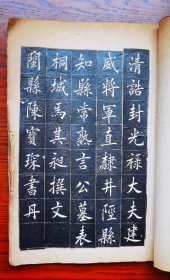 清誥封光祿大夫建
威將軍直隸井陘縣
知縣常熟言公墓表
桐城馬其昶撰文
閩縣陳寶琛書丹